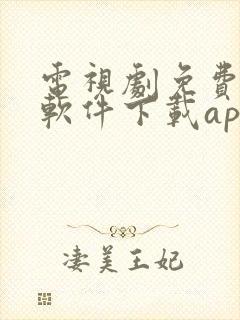 電視劇免費
軟件下載ap
淒美王妃